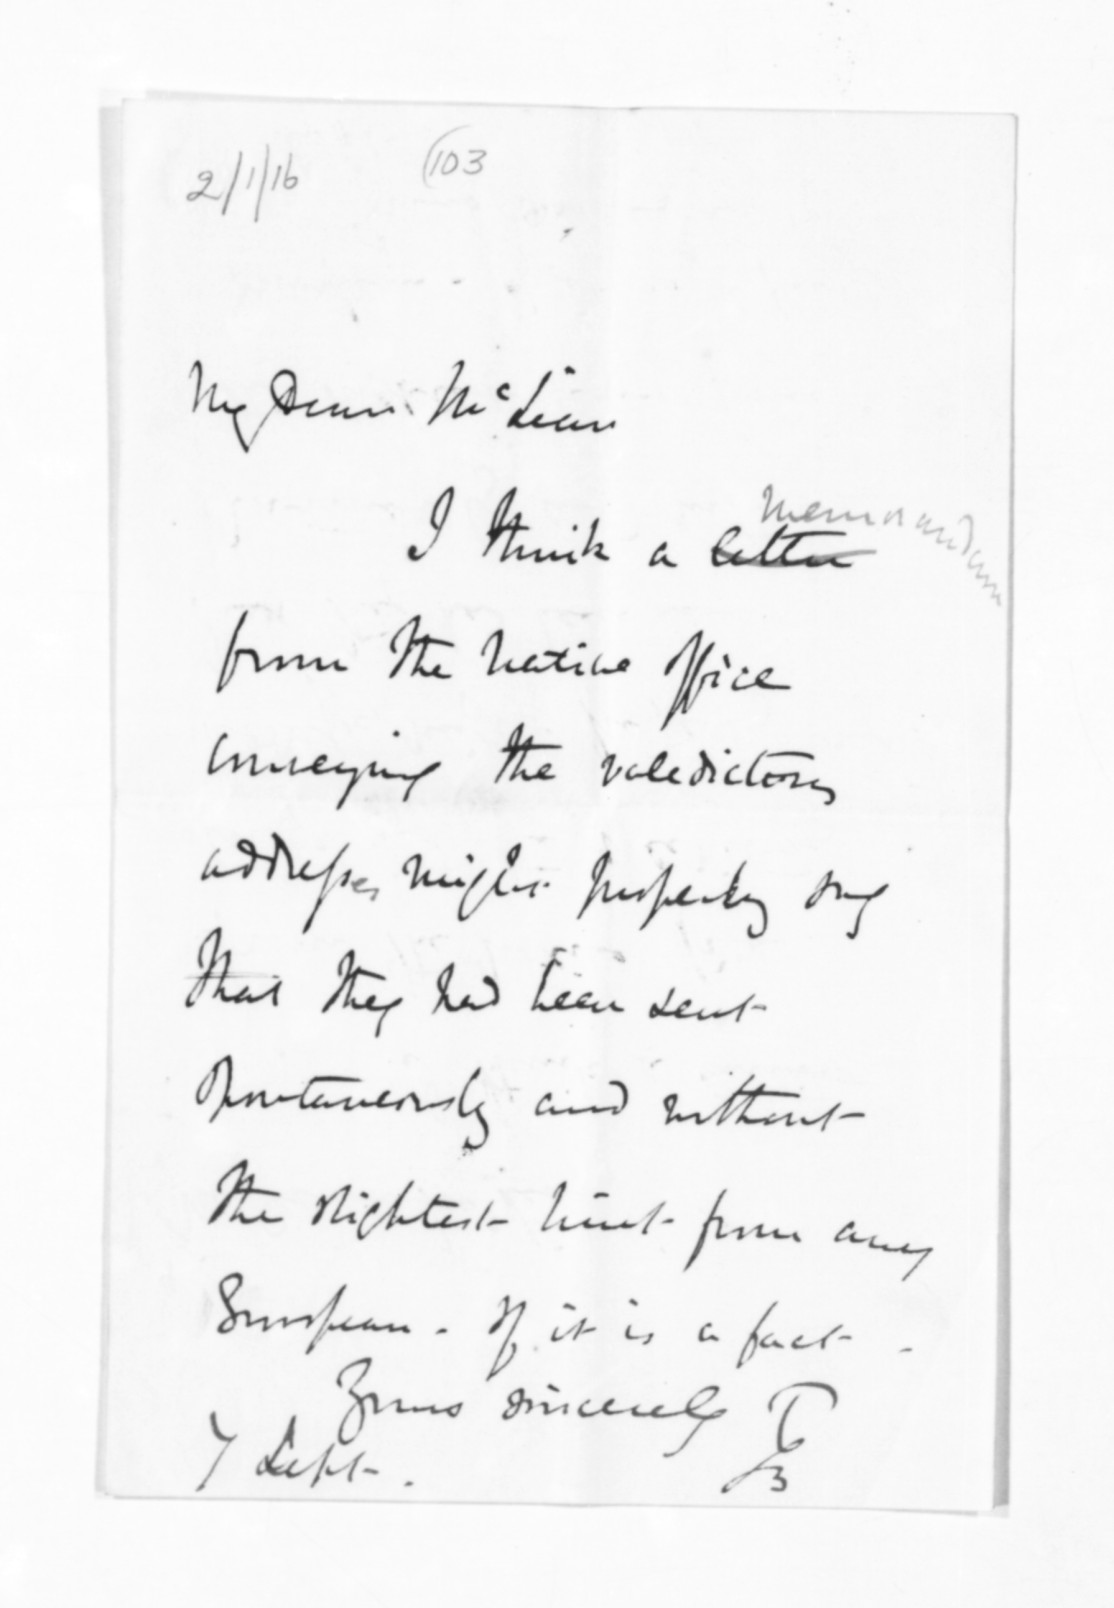 2/1/16 (103
My Dear McLean
I think a letter memorandum
from the Native Office
conveying the valedictory
addresses might properly say
that they had been sent
spontaneously and without
the slightest hint from any
European - If it is a fact -
Yours sincerely
7 Sept.